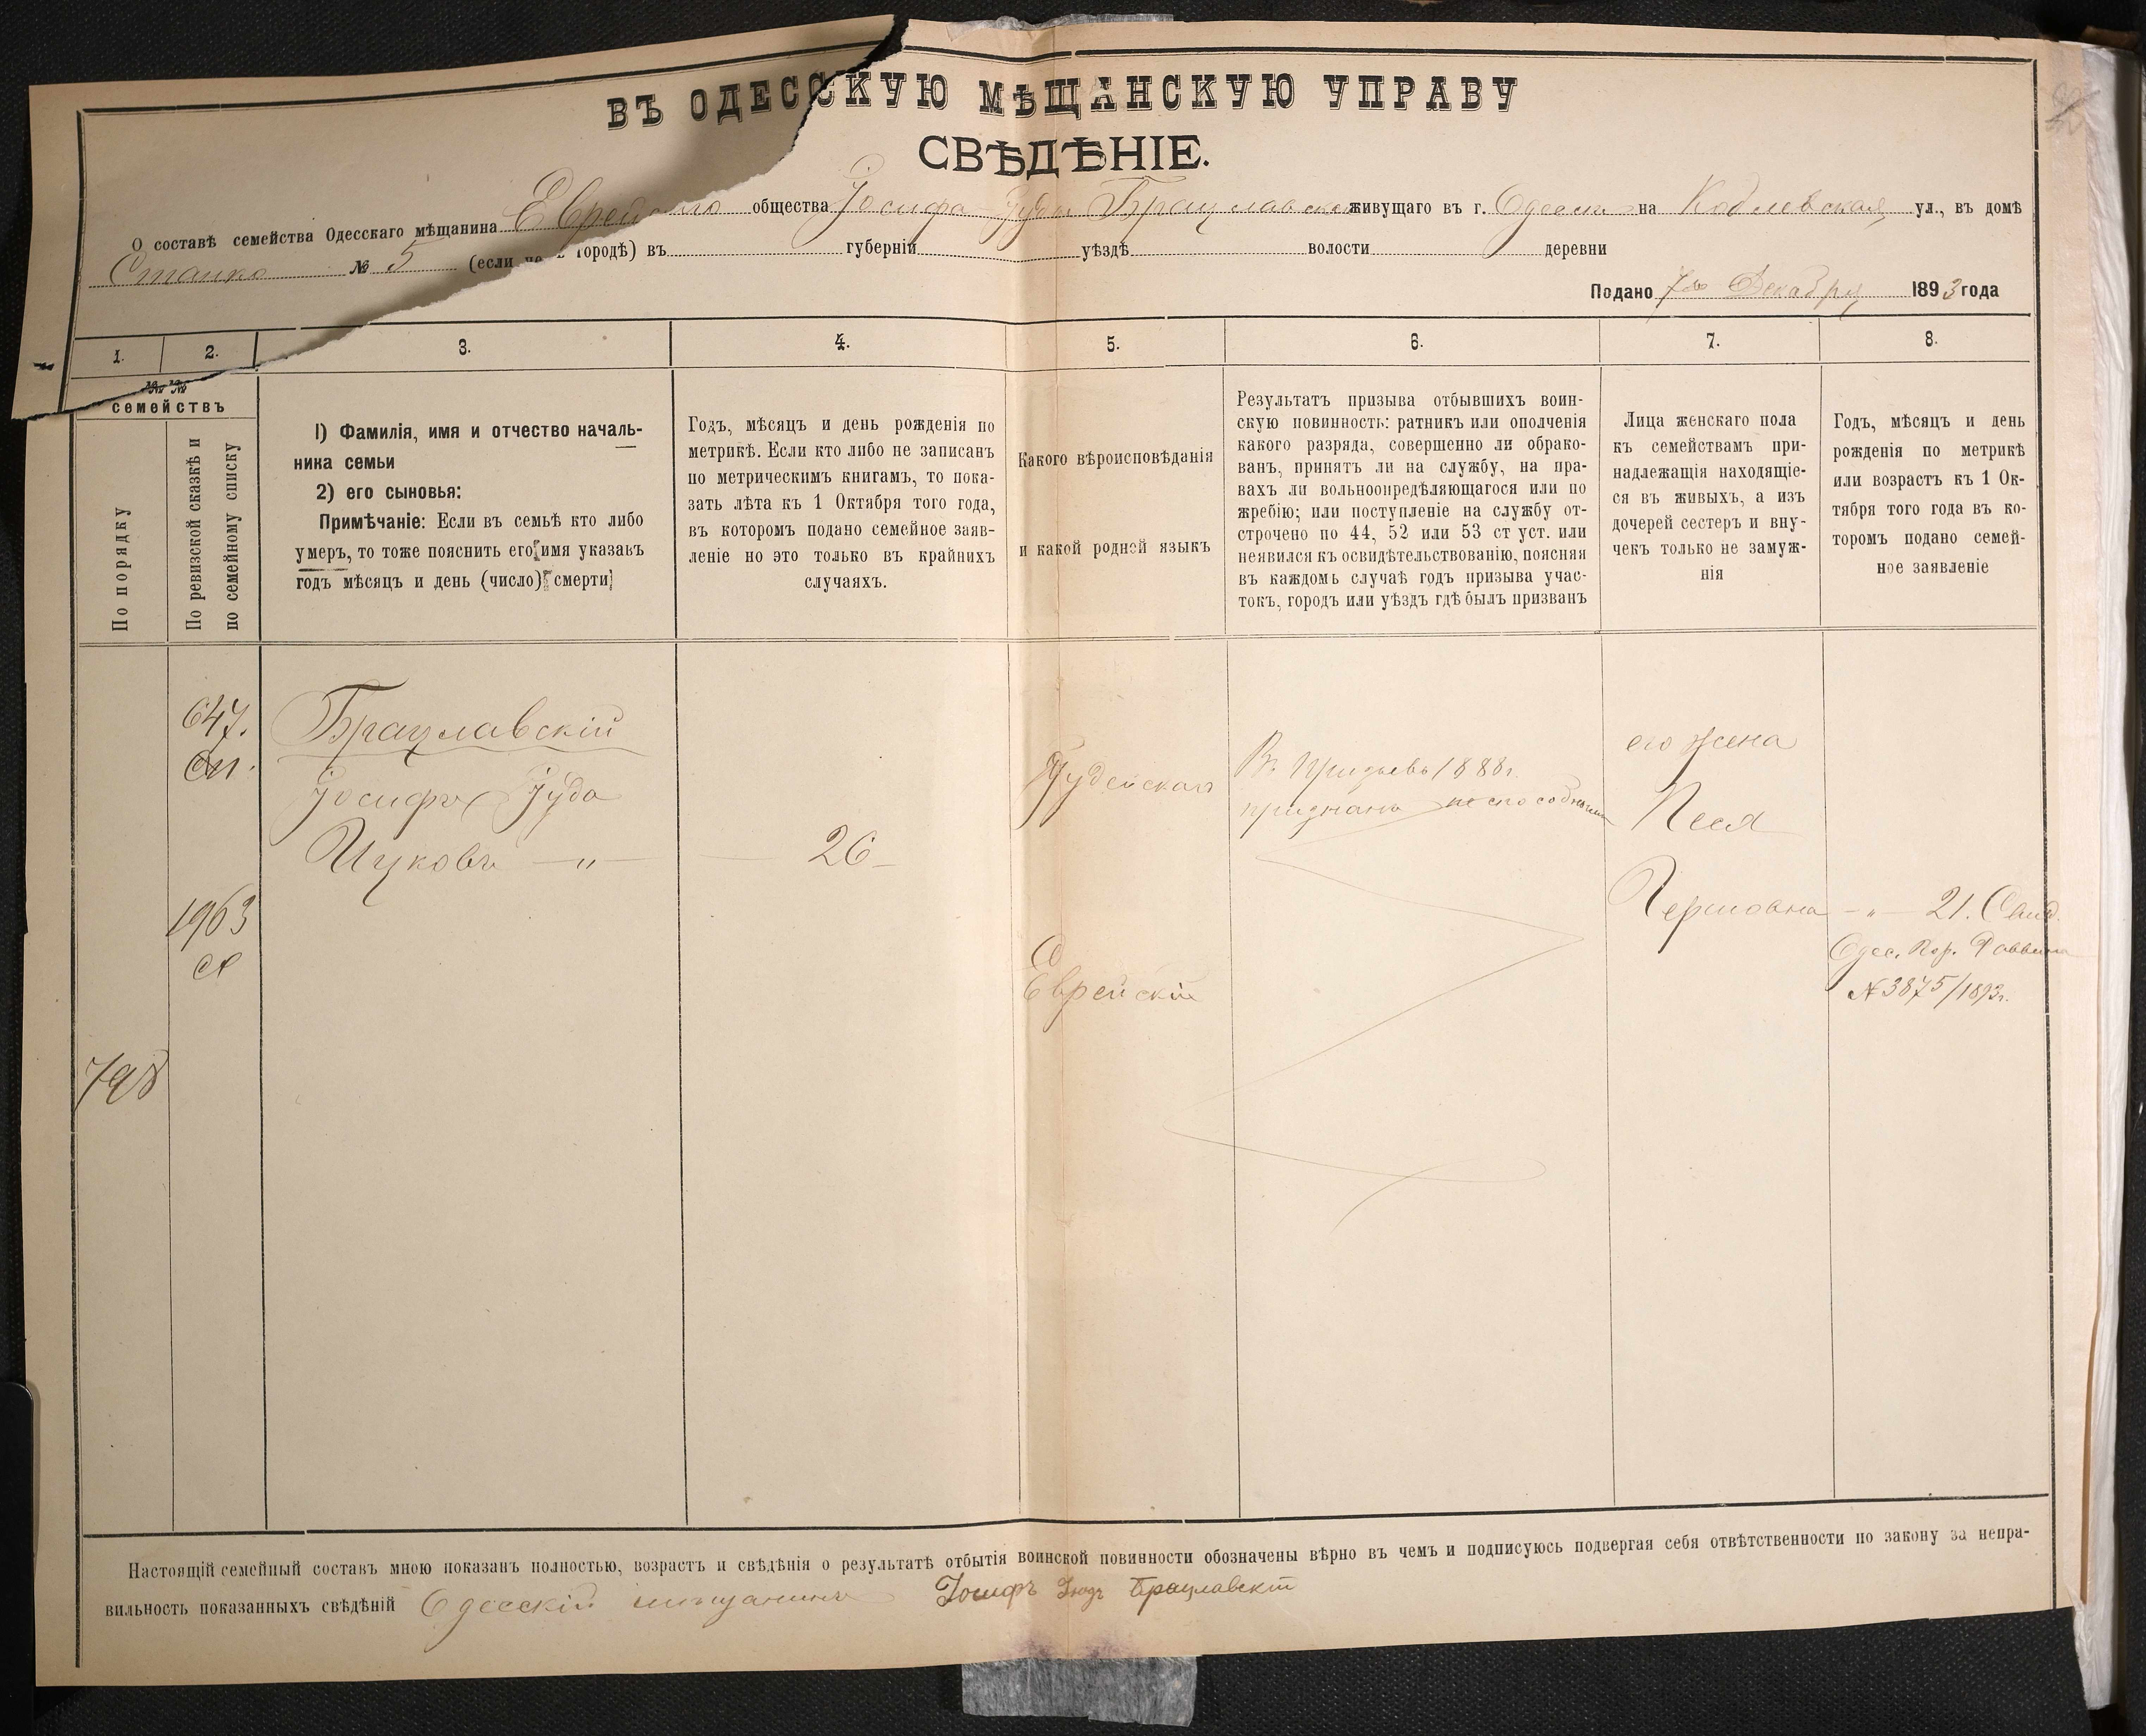 ВЪ ОДЕССКУЮ МѢЩАНСКУЮ УПРАВУ
СВѢДѢНІЕ.
О составѣ семейства Одесскаго мѣщанина Еврейскаго общества Іосифа Іуды Брацлавскаго живущаго въ г. Одессѣ на Коблевская ул., въ домѣ
Станко № 5 (если не въ городѣ) въ губерніи уѣздѣ волости деревни
Подано 7го Декабря 1893 года
1. 2. 3. 4. 5. 6. 7. 8.
№№
семействъ
По порядку
По ревизской сказкѣ и
по семейному списку
1) Фамилія, имя и отчество началь-
ника семьи
2) его сыновья:
Примѣчаніе: Если въ семьѣ кто либо
умеръ, то тоже пояснить его имя указавъ
годъ мѣсяцъ и день (число) смерти
Годъ, мѣсяцъ и день рожденія по
метрикѣ. Если кто либо не записанъ
по метрическимъ книгамъ, то пока-
зать лѣта къ 1 Октября того года,
въ которомъ подано семейное заяв-
леніе но это только въ крайнихъ
случаяхъ.
Какого вѣроисповѣданія
и какой родной языкъ
Результатъ призыва отбывшихъ воин-
скую повинность: ратникъ или ополченія
какого разряда, совершенно ли обрако-
ванъ, принятъ ли на службу, на пра-
вахъ ли вольноопредѣляющагося или по
жребію; или поступленіе на службу от-
строчено по 44, 52 или 53 ст уст. или
неявился къ освидѣтельствованію, поясняя
въ каждомъ случаѣ годъ призыва учас-
токъ, городъ или уѣздъ гдѣ былъ призванъ
Лица женскаго пола
къ семействамъ при-
надлежащія находящіе-
ся въ живыхъ, а изъ
дочерей сестеръ и вну-
чекъ только не замуж-
нія
Годъ, мѣсяцъ и день
рожденія по метрикѣ
или возрастъ къ 1 Ок-
тября того года въ ко-
торомъ подано семей-
ное заявленіе
647.
сп.
1963
798
Брацлавскій
Іосифъ Іуда
Ицковъ — " —
— 26 —
Іудейская
Еврейскій
Въ Призывъ 1888 г.
признанъ неспособнымъ
его жена
Песя
Гершовна — " — 21. Свид.
Одес. Гор. Раввина
№ 3875/1893 г.
Настоящій семейный составъ мною показанъ полностью, возрастъ и свѣдѣнія о результатѣ отбытія воинской повинности обозначены вѣрно въ чемъ и подписуюсь подвергая себя отвѣтственности по закону за непра-
вильность показанныхъ свѣдѣній Одесскій мѣщанинъ Іосифъ Іюдъ Брацлавскій